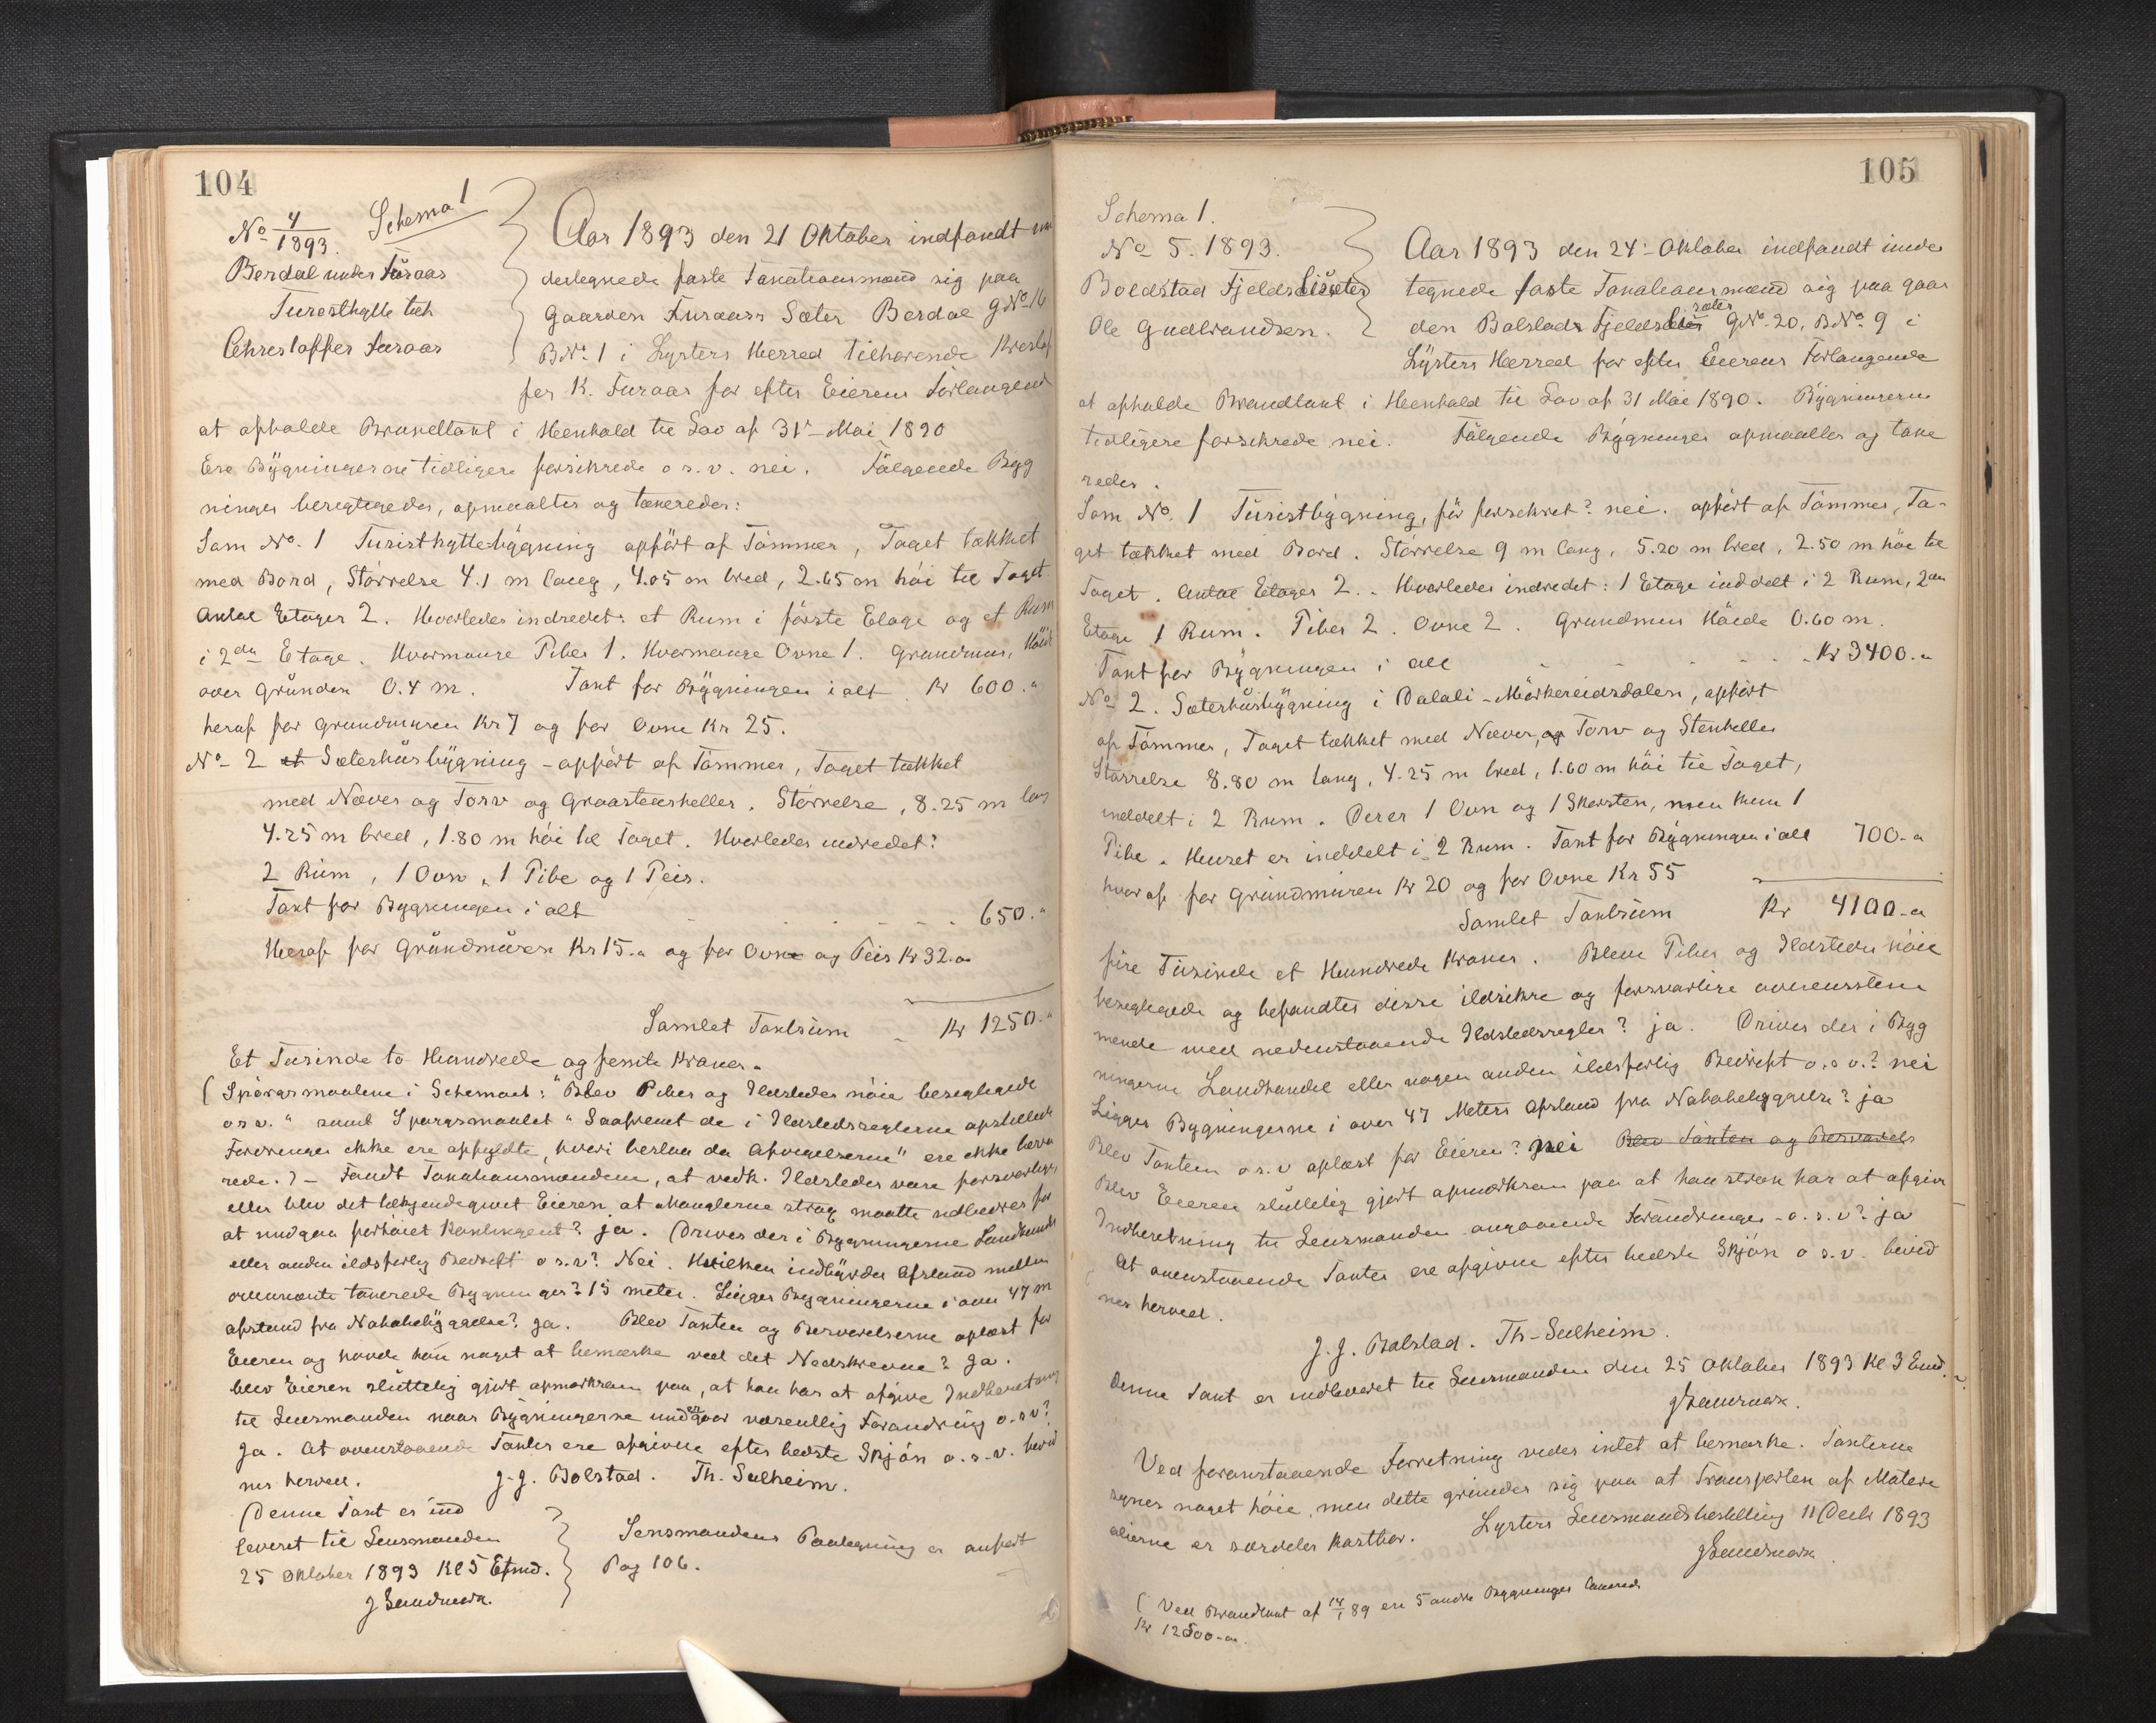 104
No 4/1893. Schema 1
Berdal under Furaas
Turisthytte tilh
Christoffer Furaas
Aar 1893 den 21 Oktober indfandt un
dertegnede faste Taxationsmænd sig paa
Gaarden Furaas Sæter Berdal GNo 16
BNo 1 i Lysters Herred tilhørende Kristof
fer K. Furaas for efter Eierens Forlangende
at afholde Brandtaxt i Henhold til Lov af 31te Mai 1890
Ere Bygningerne tidligere forsikrede o s. v. nei. Følgende Byg
ninger besigtigedes, opmaaltes og taxeredes:
Som No. 1 Turisthyttebygning opført af Tømmer, Taget tækket
med Bord, Størrelse 4.1 m lang, 4.05 m bred, 2.65 m høi til Taget
Antal Etager 2. Hvorledes indredet: et Rum i første Etage og et Rum
i 2den Etage. Hvormange Piber 1. Hvormange Ovne 1. Grundmur, Høide
over Grunden 0.4 m. Taxt for Bygningen i alt Kr 600.-
heraf for Grundmuren Kr 7 og for Ovne Kr 25.
No 2 et Sæterhusbygning - opført af Tømmer, Taget tækket
med Næver og Torv og Graastensheller. Størrelse, 8.25 m lang
4.25 m bred, 1.80 m høi til Taget. Hvorledes indredet?
2 Rum, 1 Ovn, 1 Pibe og 1 Peis.
Taxt for Bygningen i alt - - - - - 650.-
Heraf for Grundmuren Kr 15.- og for Ovne og Peis Kr 32.-
Samlet Taxtsum - Kr 1250.-
Et Tusinde to Hundrede og femti Kroner.
(Spørgsmaalene i Schemaet: "Blev Piber og Ildsteder nøie besigtigede
o s v." samt Spørgsmaalet "Saafremt de i Ildstedsreglerne opstillede
Fordringer ikke ere opfyldte, hvori bestaa da Afvigelserne" ere ikke besva
rede.) - Fandt Taxationsmændene, at vedk. Ildsteder vare forsvarlige
eller blev det tilkjendegivet Eieren, at Manglerne strax maatte udbedres for
at undgaa forhøiet Kontingent? ja. (Drives der i Bygningerne Landhandel
eller anden ildsfarlig Bedrift o s. v? Nei. Hvilken indbyrdes Afstand mellem
ovennævnte taxerede Bygninger? 15 meter. Ligger Bygningerne i over 47 m
afstand fra Nabobebyggelse? ja. Blev Taxten og Besvarelserne oplæst for
Eieren og havde han noget at bemærke ved det Nedskrevne? Ja.
blev Eieren sluttelig gjort opmærksom paa, at han har at afgive Indberetning
til Lensmanden naar Bygningerne undergaar væsentlig Forandring o. s v?
Ja. At ovenstaaende Taxter ere afgivne efter bedste Skjøn o. s. v. bevid
nes herved. J. J. Bolstad. Th. Sulheim.
(Denne Taxt er ind
leveret til Lensmanden
25 Oktober 1893 Kl 5 Efmd.
J Sandnæs.
Lensmandens Paategning er anført
Pag 106.
105
Schema 1.
No 5. 1893.
Boldstad Fjeldslisæter
Ole Gudbrandsen.
Aar 1893 den 24- Oktober indfandt under
tegnede faste Taxationsmænd sig paa gaar
den Bolstads Fjeldslisæter GNo 20, BNo 9 i
Lysters Herred for efter Eierens Forlangende
at afholde Brandtaxt i Henhold til Lov af 31 Mai 1890. Bygningerne
tidligere forsikrede nei. Følgende Bygninger opmaaltes og taxe
redes.
Som No. 1 Turistbygning, før forsikret? nei. opført af Tømmer, Ta-
get tækket med Bord. Størrelse 9 m lang, 5.20 m bred, 2.50 m høi til
Taget. Antal Etager 2. Hvorledes indredet: 1 Etage inddelt i 2 Rum, 2den
Etage 1 Rum. Piber 2. Ovne 2. Grundmur Høide 0.60 m.
Taxt for Bygningen i alt - - - - Kr 3400.-
No 2. Sæterhusbygning i Dalali - Mørkereidsdalen, opført
af Tømmer, Taget tækket med Næver, og Torv og Stenheller
Størrelse 8.80 m lang, 4.25 m bred, 1.60 m høi til Taget,
inddelt i 2 Rum. Der er 1 Ovn og 1 Skorsten, men kun 1
Pibe. Huset er inddelt i 2 Rum. Taxt for Bygningen i alt 700.-
hvoraf for Grundmuren Kr 20 og for Ovne Kr 55
Samlet Taxtsum Kr 4100.-
fire Tusinde et Hundrede Kroner. Bleve Piber og Ildsteder nøie
besigtigede og befandtes disse ildsikre og forsvarlige overensstem
mende med nedenstaaende Ildstedsregler? ja. Drives der i Byg
ningerne Landhandel eller nogen anden ildsfarlig Bedrift o. s v.? nei
Ligger Bygningerne i over 47 Meters Afstand fra Nabobebyggelse? ja
Blev Taxten o s. v oplæst for Eieren? nei Blev Taxten og Besvarels
Blev Eieren sluttelig gjort opmærksom paa at han strax har at afgive
Indberetning til Lensmanden angaaende Forandringer - o. s. v? ja
At ovenstaaende Taxter ere afgivne efter bedste Skjøn o s. v. bevid
nes herved.
J. J. Bolstad. Th. Sulheim.
Denne Taxt er indleveret til Lensmanden den 25 Oktober 1893 Kl 3 Emd.
J Sandnæs.
Ved foranstaaende Forretning vides intet at bemærke. Taxterne
synes noget høie, men dette grunder sig paa at Transporten af Materi
alierne er særdeles kostbar. Lysters Lensmandsbestilling 11 Decb 1893
J Sandnæs.
(Ved Brandtaxt af 14/1 89 ere 5 andre Bygninger taxerede
Kr 12500.-